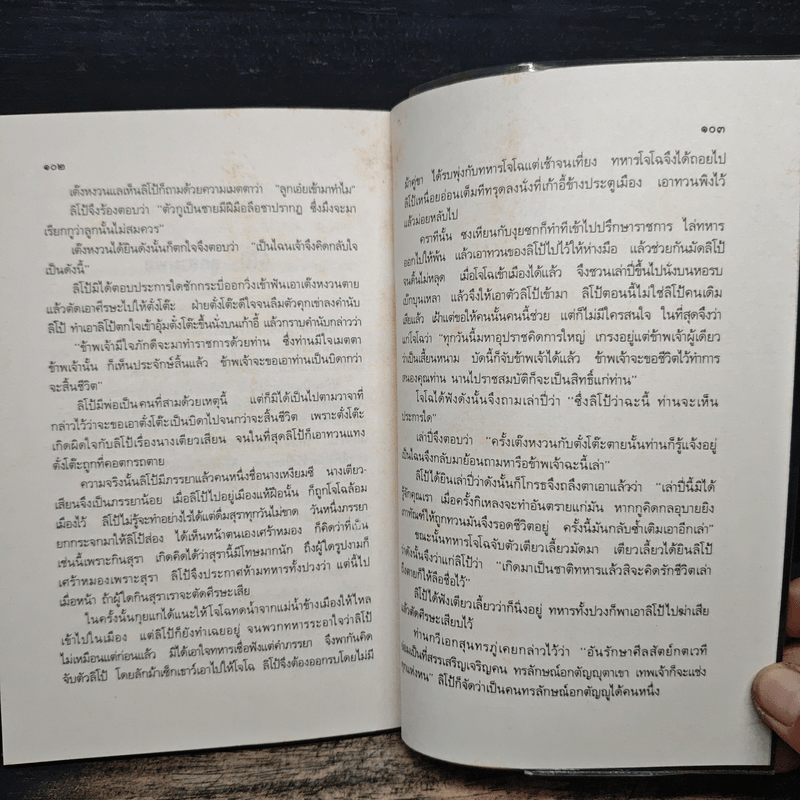 ๑๐๒
เต๊งหงวนแลเห็นลิโป้ก็ถามด้วยความเมตตาว่า "ลูกเอ๋ยเข้ามาทำไม"
ลิโป้จึงร้องตอบว่า "ตัวกูเป็นชายมีฝีมือลือชาปรากฏ ซึ่งมึงจะมา
เรียกกูว่าลูกนั้นไม่สมควร"
เต๊งหงวนได้ยินดังนั้นก็ตกใจจึงตอบว่า "เป็นไฉนเจ้าจึงคิดกลับใจ
เป็นดังนี้"
ลิโป้มิได้ตอบประการใดชักกระบี่ออกวิ่งเข้าฟันเอาเต๊งหงวนตาย
แล้วตัดเอาศีรษะไปให้ตั๋งโต๊ะ ฝ่ายตั๋งโต๊ะดีใจจนลืมตัวคุกเข่าลงคำนับ
ลิโป้ ทำเอาลิโป้ตกใจเข้าอุ้มตั๋งโต๊ะขึ้นนั่งบนเก้าอี้ แล้วกราบคำนับกล่าวว่า
"ข้าพเจ้ามีใจภักดีจะมาทำราชการด้วยท่าน ซึ่งท่านมีใจเมตตา
ข้าพเจ้านั้น ก็เห็นประจักษ์สิ้นแล้ว ข้าพเจ้าจะขอเอาท่านเป็นบิดากว่า
จะสิ้นชีวิต"
ลิโป้มีพ่อเป็นคนที่สามด้วยเหตุนี้ แต่ก็มิได้เป็นไปตามวาจาที่
กล่าวไว้ว่าจะขอเอาตั๋งโต๊ะเป็นบิดาไปจนกว่าจะสิ้นชีวิต เพราะตั๋งโต๊ะ
เกิดผิดใจกับลิโป้เรื่องนางเตียวเสียน จนในที่สุดลิโป้ก็เอาทวนแทง
ตั๋งโต๊ะถูกที่คอตกรถตาย
ความจริงนั้นลิโป้มีภรรยาแล้วคนหนึ่งชื่อนางเหงียมซี นางเตียว-
เสียนจึงเป็นภรรยาน้อย เมื่อลิโป้ไปอยู่เมืองแห้ฝือนั้น ก็ถูกโจโฉล้อม
เมืองไว้ ลิโป้ไม่รู้จะทำอย่างไรได้แต่ดื่มสุราทุกวันไม่ขาด วันหนึ่งภรรยา
ยกกระจกมาให้ลิโป้ส่อง ได้เห็นหน้าตนเองเศร้าหมอง ก็คิดว่าที่เป็น
เช่นนี้เพราะกินสุรา เกิดคิดได้ว่าสุรานี้มีโทษมากนัก ถึงผู้ใดรูปงามก็
เศร้าหมองเพราะสุรา ลิโป้จึงประกาศห้ามทหารทั้งปวงว่า แต่นี้ไป
เมื่อหน้า ถ้าผู้ใดกินสุราเราจะตัดศีรษะเสีย
ในครั้งนั้นกุยแกได้แนะให้โจโฉทดน้ำจากแม่น้ำข้างเมืองให้ไหล
เข้าไปในเมือง แต่ลิโป้ก็ยังทำเฉยอยู่ จนพวกทหารระอาใจว่าลิโป้
ไม่เหมือนแต่ก่อนแล้ว มิได้เอาใจทหารเชื่อฟังแต่คำภรรยา จึงพากันคิด
จับตัวลิโป้ โดยลักม้าเซ็กเธาว์เอาไปให้โจโฉ ลิโป้จึงต้องออกรบโดยไม่มี
๑๐๓
ม้าคู่ขา ได้รบพุ่งกับทหารโจโฉแต่เช้าจนเที่ยง ทหารโจโฉจึงได้ถอยไป
ลิโป้เหนื่อยอ่อนเต็มทีทรุดลงนั่งที่เก้าอี้ข้างประตูเมือง เอาทวนพิงไว้
แล้วม่อยหลับไป
ครานั้น ซงเหียนกับงุยซกก็ทำทีเข้าไปปรึกษาราชการ ไล่ทหาร
ออกไปให้พ้น แล้วเอาทวนของลิโป้ไปไว้ให้ห่างมือ แล้วช่วยกันมัดลิโป้
จนดิ้นไม่หลุด เมื่อโจโฉเข้าเมืองได้แล้ว จึงชวนเล่าปี่ขึ้นไปนั่งบนหอรบ
แปะบุนเหลา แล้วจึงให้เอาตัวลิโป้เข้ามา ลิโป้ตอนนี้ไม่ใช่ลิโป้คนเดิม
เสียแล้ว เฝ้าแต่ขอให้คนนั้นคนนี้ช่วย แต่ก็ไม่มีใครสนใจ ในที่สุดจึงว่า
แก่โจโฉว่า "ทุกวันนี้มหาอุปราชคิดการใหญ่ เกรงอยู่แต่ข้าพเจ้าผู้เดียว
ว่าเป็นเสี้ยนหนาม บัดนี้ก็จับข้าพเจ้าได้แล้ว ข้าพเจ้าจะขอชีวิตไว้ทำการ
สนองคุณท่าน นานไปราชสมบัติก็จะเป็นสิทธิ์แก่ท่าน"
โจโฉได้ฟังดังนั้นจึงถามเล่าปี่ว่า "ซึ่งลิโป้ว่าฉะนี้ ท่านจะเห็น
ประการใด"
เล่าปี่จึงตอบว่า "ครั้งเต๊งหงวนกับตั๋งโต๊ะตายนั้นท่านก็รู้แจ้งอยู่
เป็นไฉนจึงกลับมาย้อนถามหารือข้าพเจ้าฉะนี้เล่า"
ลิโป้ได้ยินเล่าปี่ว่าดังนั้นก็โกรธจึงถลึงตาเอาแล้วว่า "เล่าปี่นี้มิได้
รู้จักคุณเรา เมื่อครั้งกิเหลงจะทำอันตรายแก่มัน หากกูคิดกลอุบายยิง
เกาทัณฑ์ให้ถูกทวนมันจึงรอดชีวิตอยู่ ครั้งนี้มันกลับซ้ำเติมเอาอีกเล่า"
ขณะนั้นทหารโจโฉจับตัวเตียวเลี้ยวมัดมา เตียวเลี้ยวได้ยินลิโป้
ว่าดังนั้นจึงว่าแก่ลิโป้ว่า "เกิดมาเป็นชาติทหารแล้วสิจะคิดรักชีวิตเล่า
ถึงตายก็ให้ลือชื่อไว้"
ลิโป้ได้ฟังเตียวเลี้ยวว่าก็นิ่งอยู่ ทหารทั้งปวงก็พาเอาลิโป้ไปฆ่าเสีย
แล้วตัดศีรษะเสียบไว้
ท่านกวีเอกสุนทรภู่เคยกล่าวไว้ว่า "อันรักษาศีลสัตย์กตเวที
ย่อมเป็นที่สรรเสริญเจริญคน ทรลักษณ์อกตัญญุตาเขา เทพเจ้าก็จะแช่ง
ทุกแห่งหน" ลิโป้ก็จัดว่าเป็นคนทรลักษณ์อกตัญญูได้คนหนึ่ง